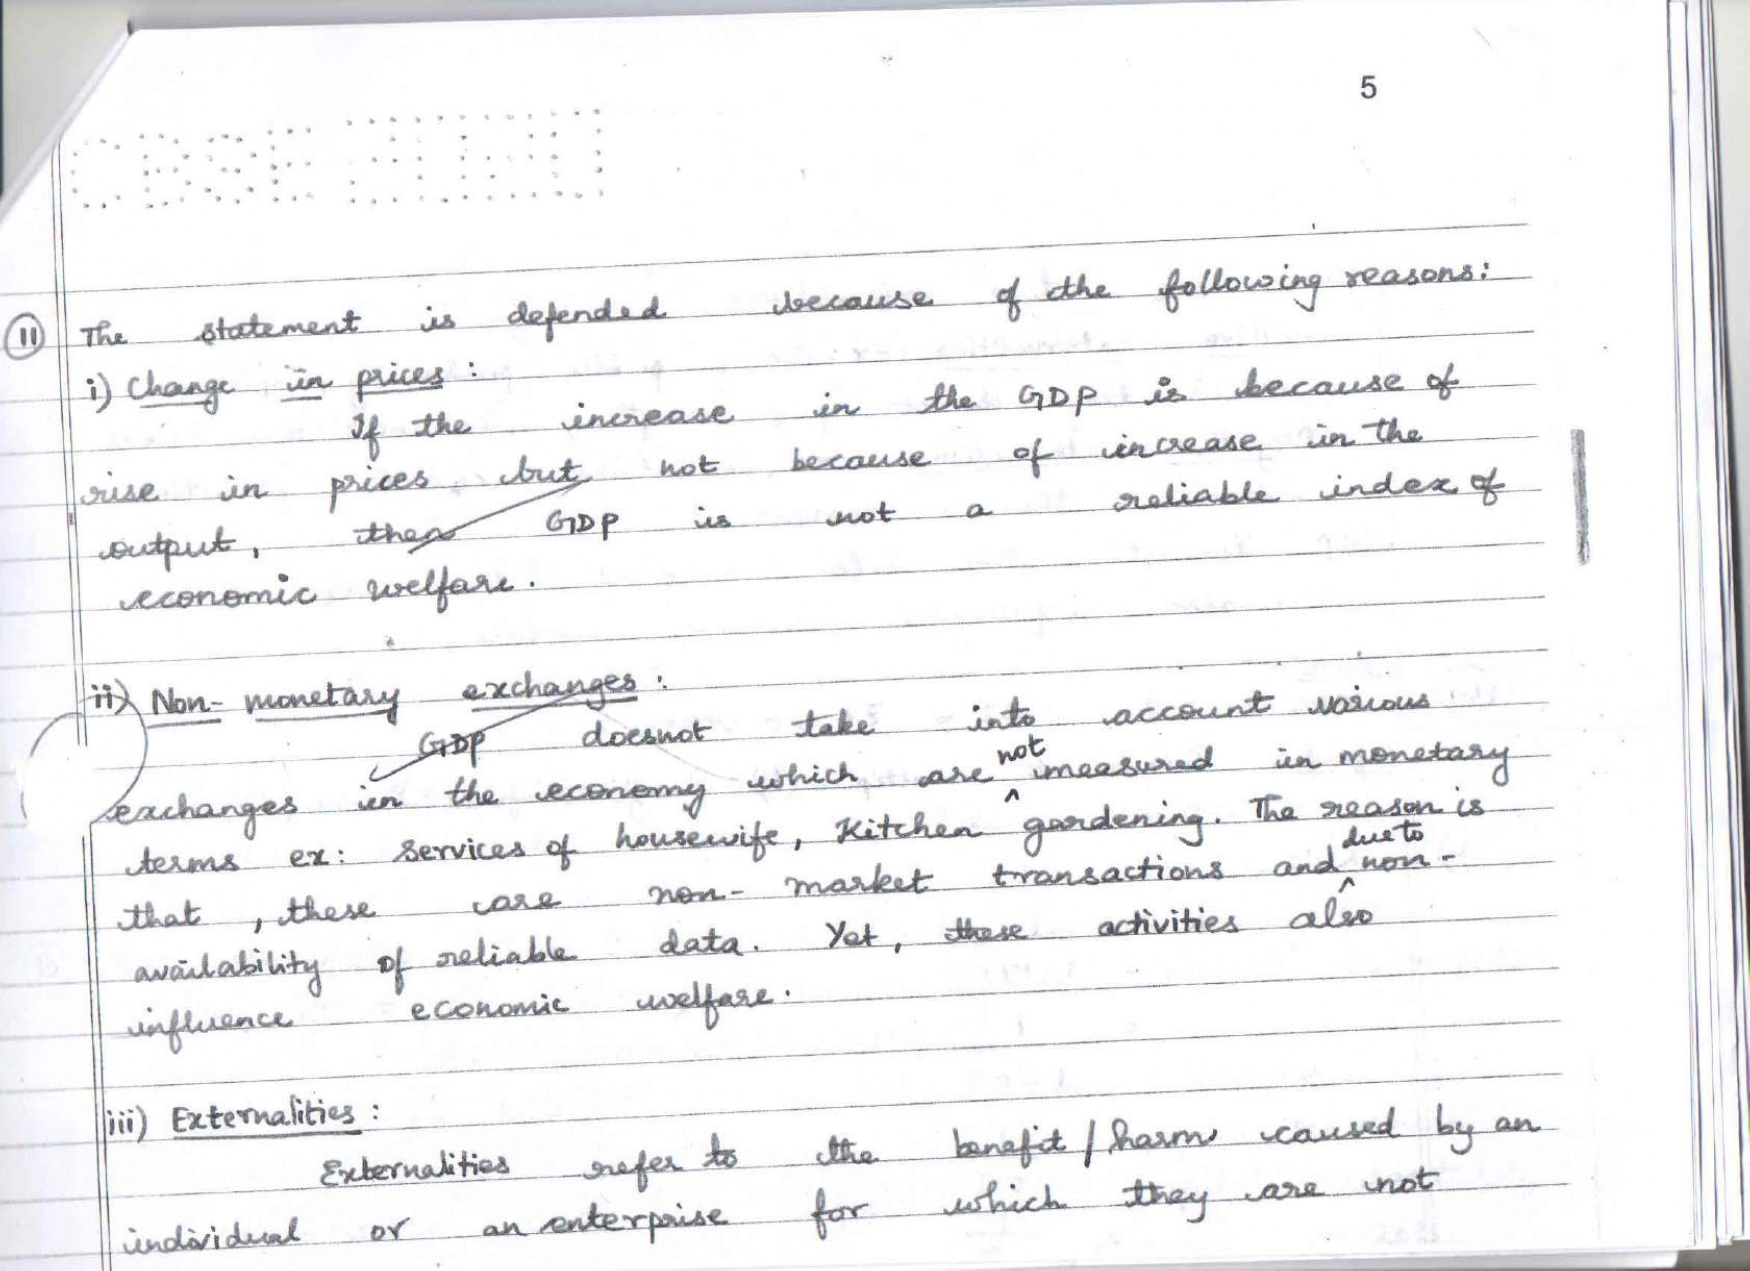 5
CBSE
11 The statement is defended because of the following reasons:
i) Change in prices :
If the increase in the GDP is because of
rise in prices but not because of increase in the
output, then GDP is not a reliable index of
economic welfare.
ii) Non-monetary exchanges :
GDP doesnot take into account various
exchanges in the economy which are not measured in monetary
terms ex: services of housewife, Kitchen gardening. The reason is
that, these are non-market transactions and due to non-
availability of reliable data. Yet, these activities also
influence economic welfare.
iii) Externalities :
Externalities refer to the benefit / harm caused by an
individual or an enterprise for which they are not